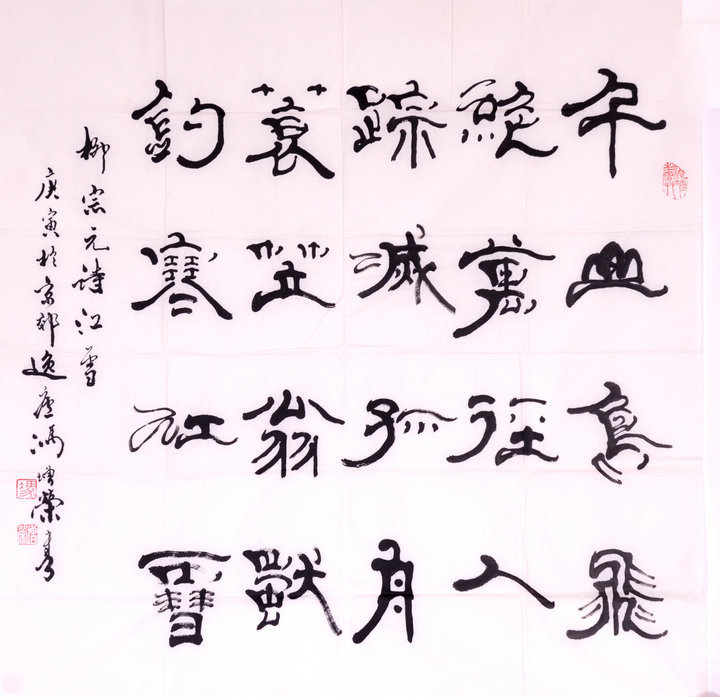 千山鳥飛
絕萬徑人
踪滅孤舟
蓑笠翁獨
釣寒江雪
柳宗元詩江雪
庚寅於京郊逸廬馮增榮書